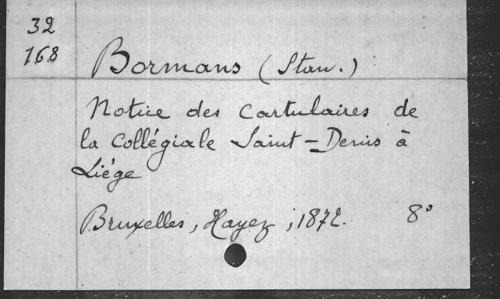 32
168
Bormans (Stan.)
Notice des Cartulaires de
la Collégiale Saint-Denis à
Liége
Bruxelles, Hayez, 1872. 8°